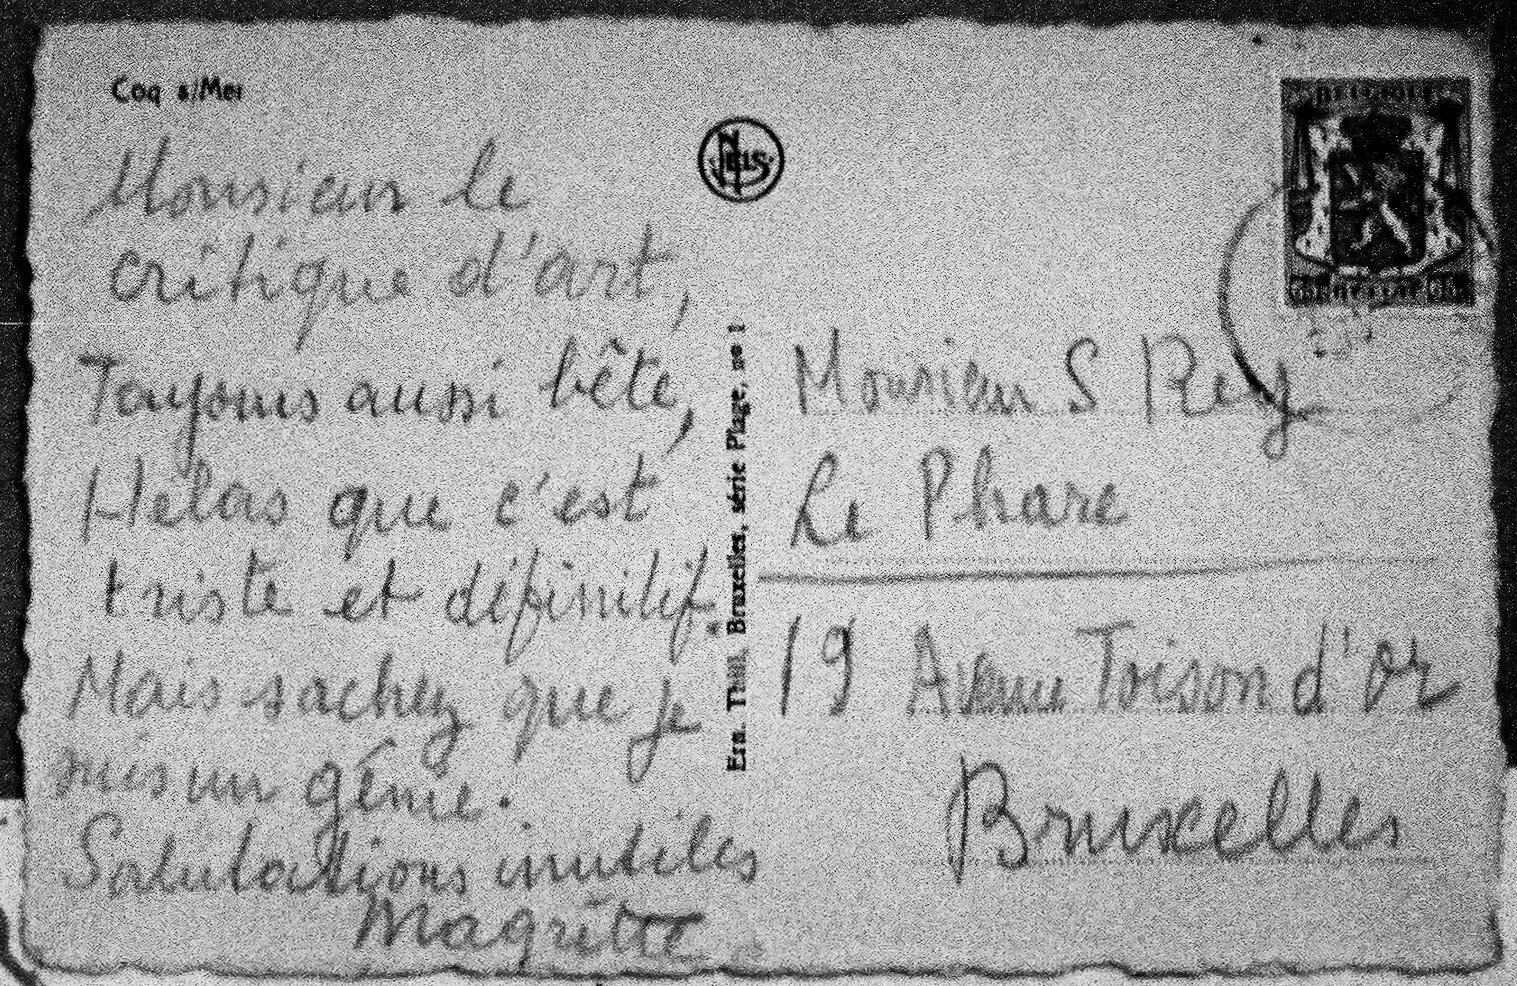 Coq s/Mer
Monsieur le
critique d'art,
Tayons aussi bête,
Hélas que c'est
triste et définitif.
Mais sachez que je
suis un génie.
Salutations inutiles
Magritte
NELS
Ern. Thill, Bruxelles, série Plage, no 1
BELGIQUE
Monsieur S Rey
Le Phare
19 Avenue Toison d'Or
Bruxelles